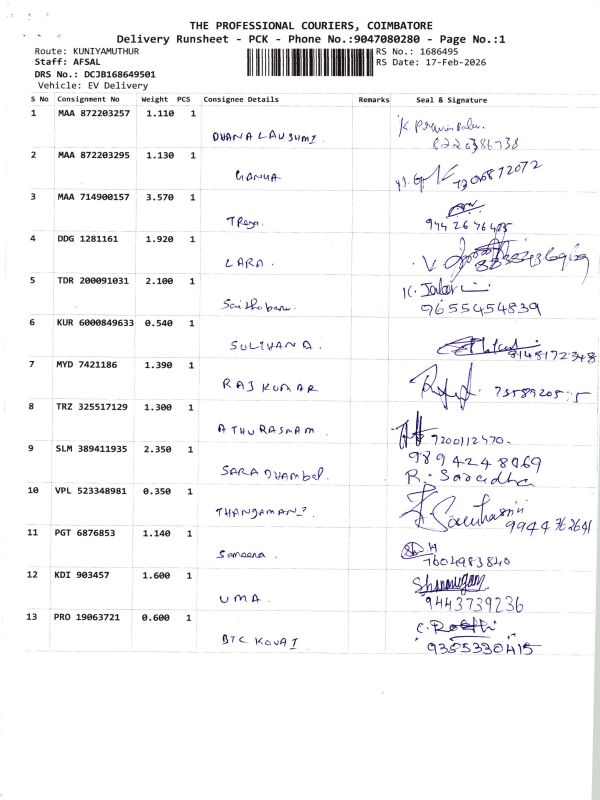 THE PROFESSIONAL COURIERS, COIMBATORE
Delivery Runsheet - PCK - Phone No.:9047080280 - Page No.:1
Route: KUNIYAMUTHUR RS No.: 1686495
Staff: AFSAL RS Date: 17-Feb-2026
DRS No.: DCJB168649501
Vehicle: EV Delivery
S No Consignment No Weight PCS Consignee Details Remarks Seal & Signature
1 MAA 872203257 1.110 1
DHANA LAUSHMI. 8220386738
2 MAA 872203295 1.130 1
7200872072
3 MAA 714900157 3.570 1
9442676425
4 DDG 1281161 1.920 1
LARA.
5 TDR 200091031 2.100 1
9655454839
6 KUR 6000849633 0.540 1
8148172348
7 MYD 7421186 1.390 1
RAJ KUMAR
8 TRZ 325517129 1.300 1
7200112470.
9 SLM 389411935 2.350 1
9894248069
R. Saradha
10 VPL 523348981 0.350 1
9944762641
11 PGT 6876853 1.140 1
Sameena. 7604983840
12 KDI 903457 1.600 1
Shanmugam
UMA. 9443739236
13 PRO 19063721 0.600 1
BTC KOVAI 9385330415